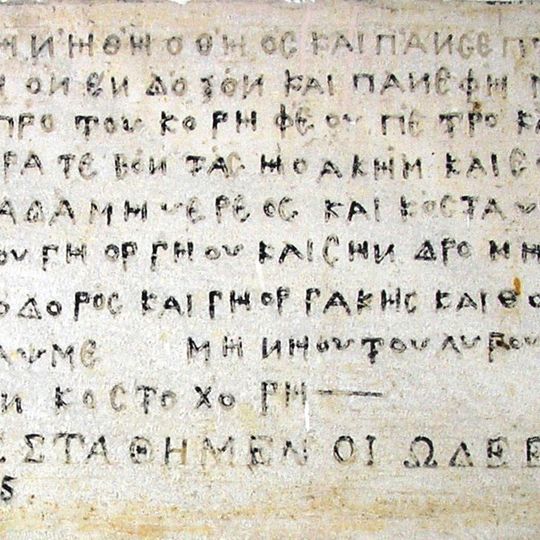 ΗΝΉΘΗΟΘΗΟΣ ΚΑΙ ΠΑΝΣΕ
ΟΝ ΕΝΔΟΞΟΝ ΚΑΙ ΠΑΝΕΦΗ
ΠΡΟ ΤΟΥ ΚΟΡΗΦΕΟΥ ΠΕΤΡΟ
ΡΑΤΕΒΟΝΤΑΣ ΗΟΑΚΗΜ ΚΑΙ
ΑΔΑΜ ΗΥΕΡΕΟΣ ΚΑΙ ΚΟΣΤΑ
ΟΥ ΓΗΟΡΓΗΟΥ ΚΑΙ ΣΗΝΔΡΟΜΗ
ΟΔΟΡΟΣ ΚΑΙ ΓΗΟΡΓΑΚΗΣ ΚΑΙ ΘΟ
ΜΗΝΗΟΥ ΤΟΥ ΛΥΒΟΥ
Ν ΚΟΣΤΟΧΟΡΗ
ΣΤΑΘΗΜΕΝΟΙ ΩΔΕ
5